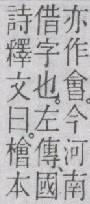 亦作會。今河南
借字也。左傳、國
詩釋文曰。檜本